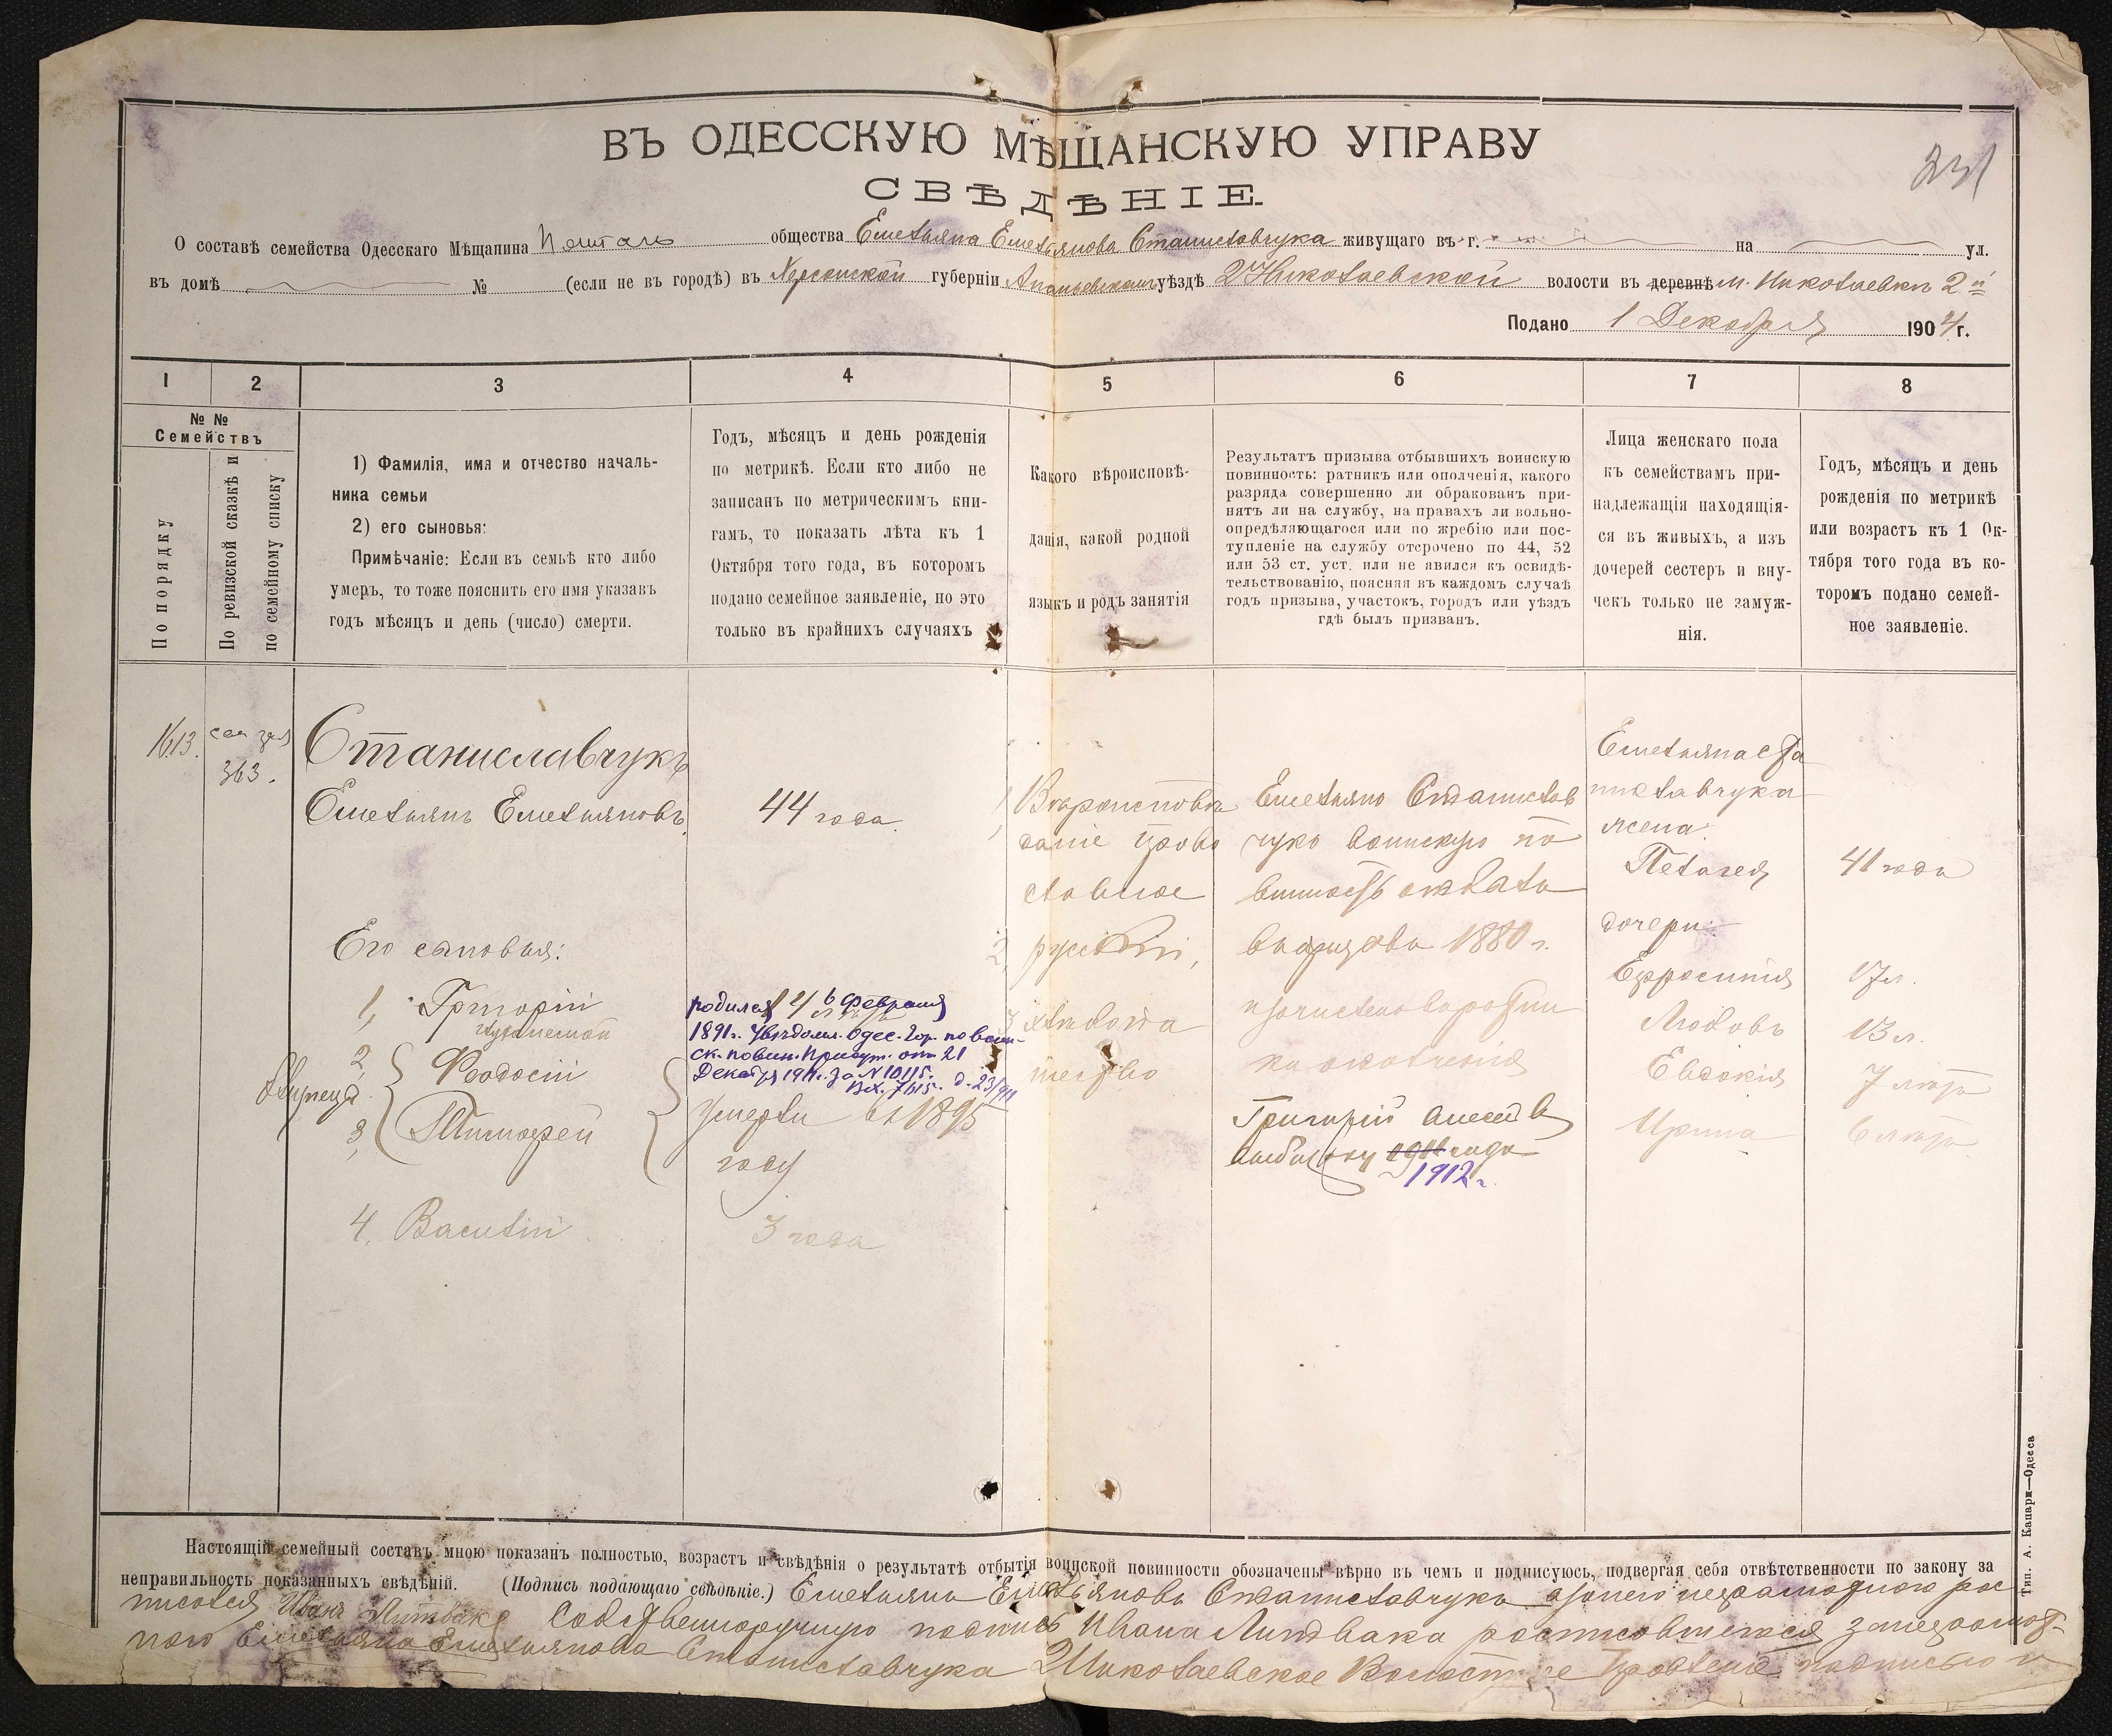 231
ВЪ ОДЕССКУЮ МѢЩАНСКУЮ УПРАВУ
СВѢДѢНІЕ.
О составѣ семейства Одесскаго Мѣщанина общества Емельяна Емельянова Станиславчука живущаго въ г. на ул.
въ домѣ № (если не въ городѣ) въ Херсонской губерніи Ананьевскомъ уѣздѣ 2 Николаевской волости въ деревнѣ м. Николаевкѣ 2й
Подано 1 Декабря 1904 г.
1 2 3 4 5 6 7 8
№ №
Семействъ
По порядку
По ревизской сказкѣ и
по семейному списку
1) Фамилія, имя и отчество началь-
ника семьи
2) его сыновья:
Примѣчаніе: Если въ семьѣ кто либо
умеръ, то тоже пояснить его имя указавъ
годъ мѣсяцъ и день (число) смерти.
Годъ, мѣсяцъ и день рожденія
по метрикѣ. Если кто либо не
записанъ по метрическимъ кни-
гамъ, то показать лѣта къ 1
Октября того года, въ которомъ
подано семейное заявленіе, но это
только въ крайнихъ случаяхъ
Какого вѣроисповѣ-
данія, какой родной
языкъ и родъ занятія
Результатъ призыва отбывшихъ воинскую
повинность: ратникъ или ополченія, какого
разряда совершенно ли обракованъ при-
нятъ ли на службу, на правахъ ли вольно-
опредѣляющагося или по жребію или пос-
тупленіе на службу отсрочено по 44, 52
или 53 ст. уст. или не явился къ освидѣ-
тельствованію, поясняя въ каждомъ случаѣ
годъ призыва, участокъ, городъ или уѣздъ
гдѣ былъ призванъ.
Лица женскаго пола
къ семействамъ при-
надлежащія находящія-
ся въ живыхъ, а изъ
дочерей сестеръ и вну-
чекъ только не замуж-
нія.
Годъ, мѣсяцъ и день
рожденія по метрикѣ
или возрастъ къ 1 Ок-
тября того года въ ко-
торомъ подано семей-
ное заявленіе.
1613.
363.
Станиславчукъ
Емельянъ Емельяновъ
44 года.
Его сыновья:
1, Григорій
2, Феодосій
3, Тимофей
4. Василій
родился 6 Февраля
1891 г. Увѣдомл. Одес. Гор. по воин-
ск. повин. Присут. отъ 21
Декабря 1911 г. за N 10115.
Вх. 7615. д. 23/911
умерли въ 1895
году
3 года
1, Вѣроисповѣ
даніе право
славное
2, русскій,
3 хлѣбопа
шество
Емельянъ Станислав
чукъ воинскую по
винность отбылъ
въ призывъ 1880 г.
Григорій
1911 года
1912 г.
Емельяна Ста
ниславчука
жена:
Пелагея
дочери:
Ефросинія
Любовь
Евдокія
Ирина
41 года
17 л.
13 л.
7 лѣтъ
6 лѣтъ
Настоящій семейный составъ мною показанъ полностью, возрастъ и свѣдѣнія о результатѣ отбытія воинской повинности обозначены вѣрно въ чемъ и подписуюсь, подвергая себя отвѣтственности по закону за
неправильность показанныхъ свѣдѣній. (Подпись подающаго свѣдѣніе.) Емельянъ Емельяновъ Станиславчукъ а за него неграмотнаго рос
писался Иванъ Литвакъ Собственноручную подпись Ивана Литвака росписавшагося за неграмот-
наго Емельяна Емельянова Станиславчука 2 Николаевское Волостное Правленіе подписью и
Тип. А. Капари—Одесса